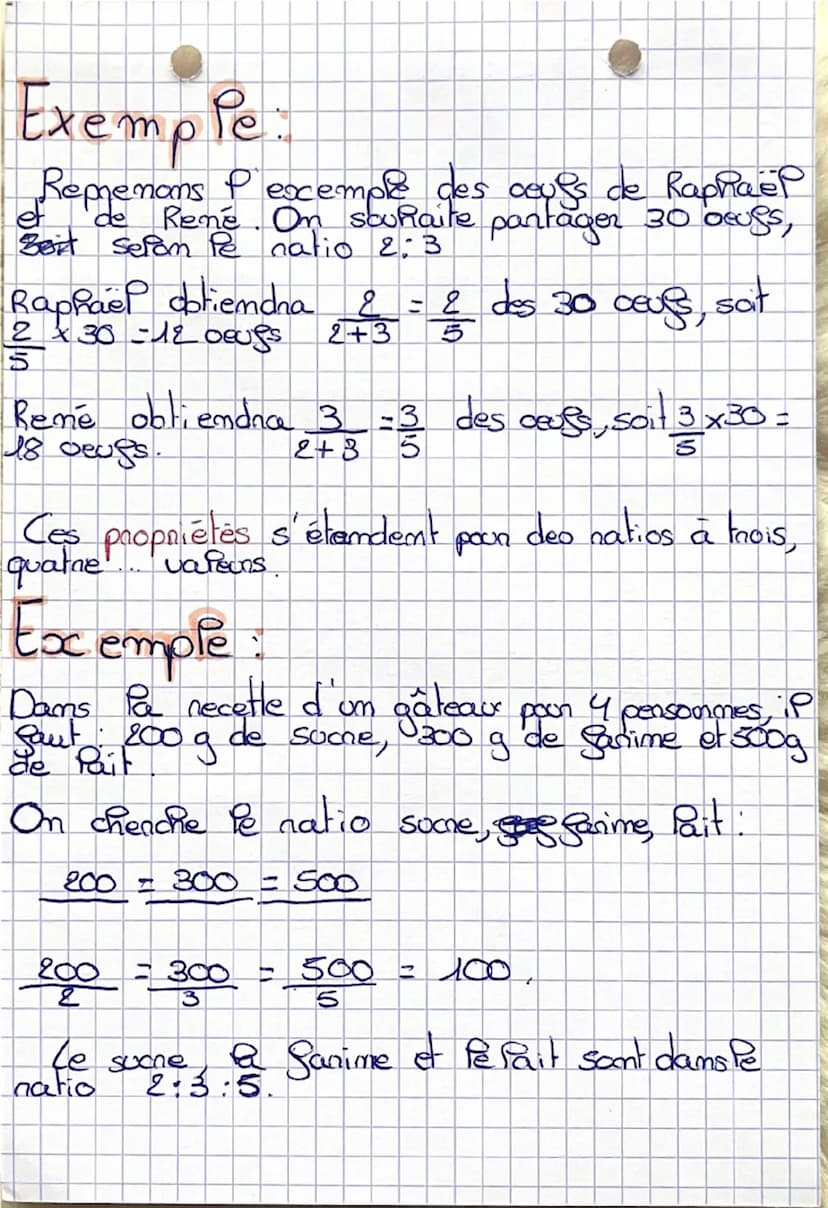 Exemple :
Reprenons l'exemple des oeufs de Raphaël
et de René. On souhaite partager 30 oeufs,
selon le ratio 2:3
Raphaël obtiendra 2/(2+3) = 2/5 des 30 oeufs, soit
2/5 x 30 = 12 oeufs
René obtiendra 3/(2+3) = 3/5 des oeufs, soit 3/5 x 30 =
18 oeufs.
Ces propriétés s'étendent pour des ratios à trois,
quatre ... valeurs.
Exemple :
Dans la recette d'un gâteaux pour 4 personnes, il
faut : 200 g de sucre, 300 g de farine et 500g
de lait.
On cherche le ratio sucre, farine, lait :
200 = 300 = 500
200/2 = 300/3 = 500/5 = 100.
Le sucre, la farine et le lait sont dans le
ratio 2:3:5.